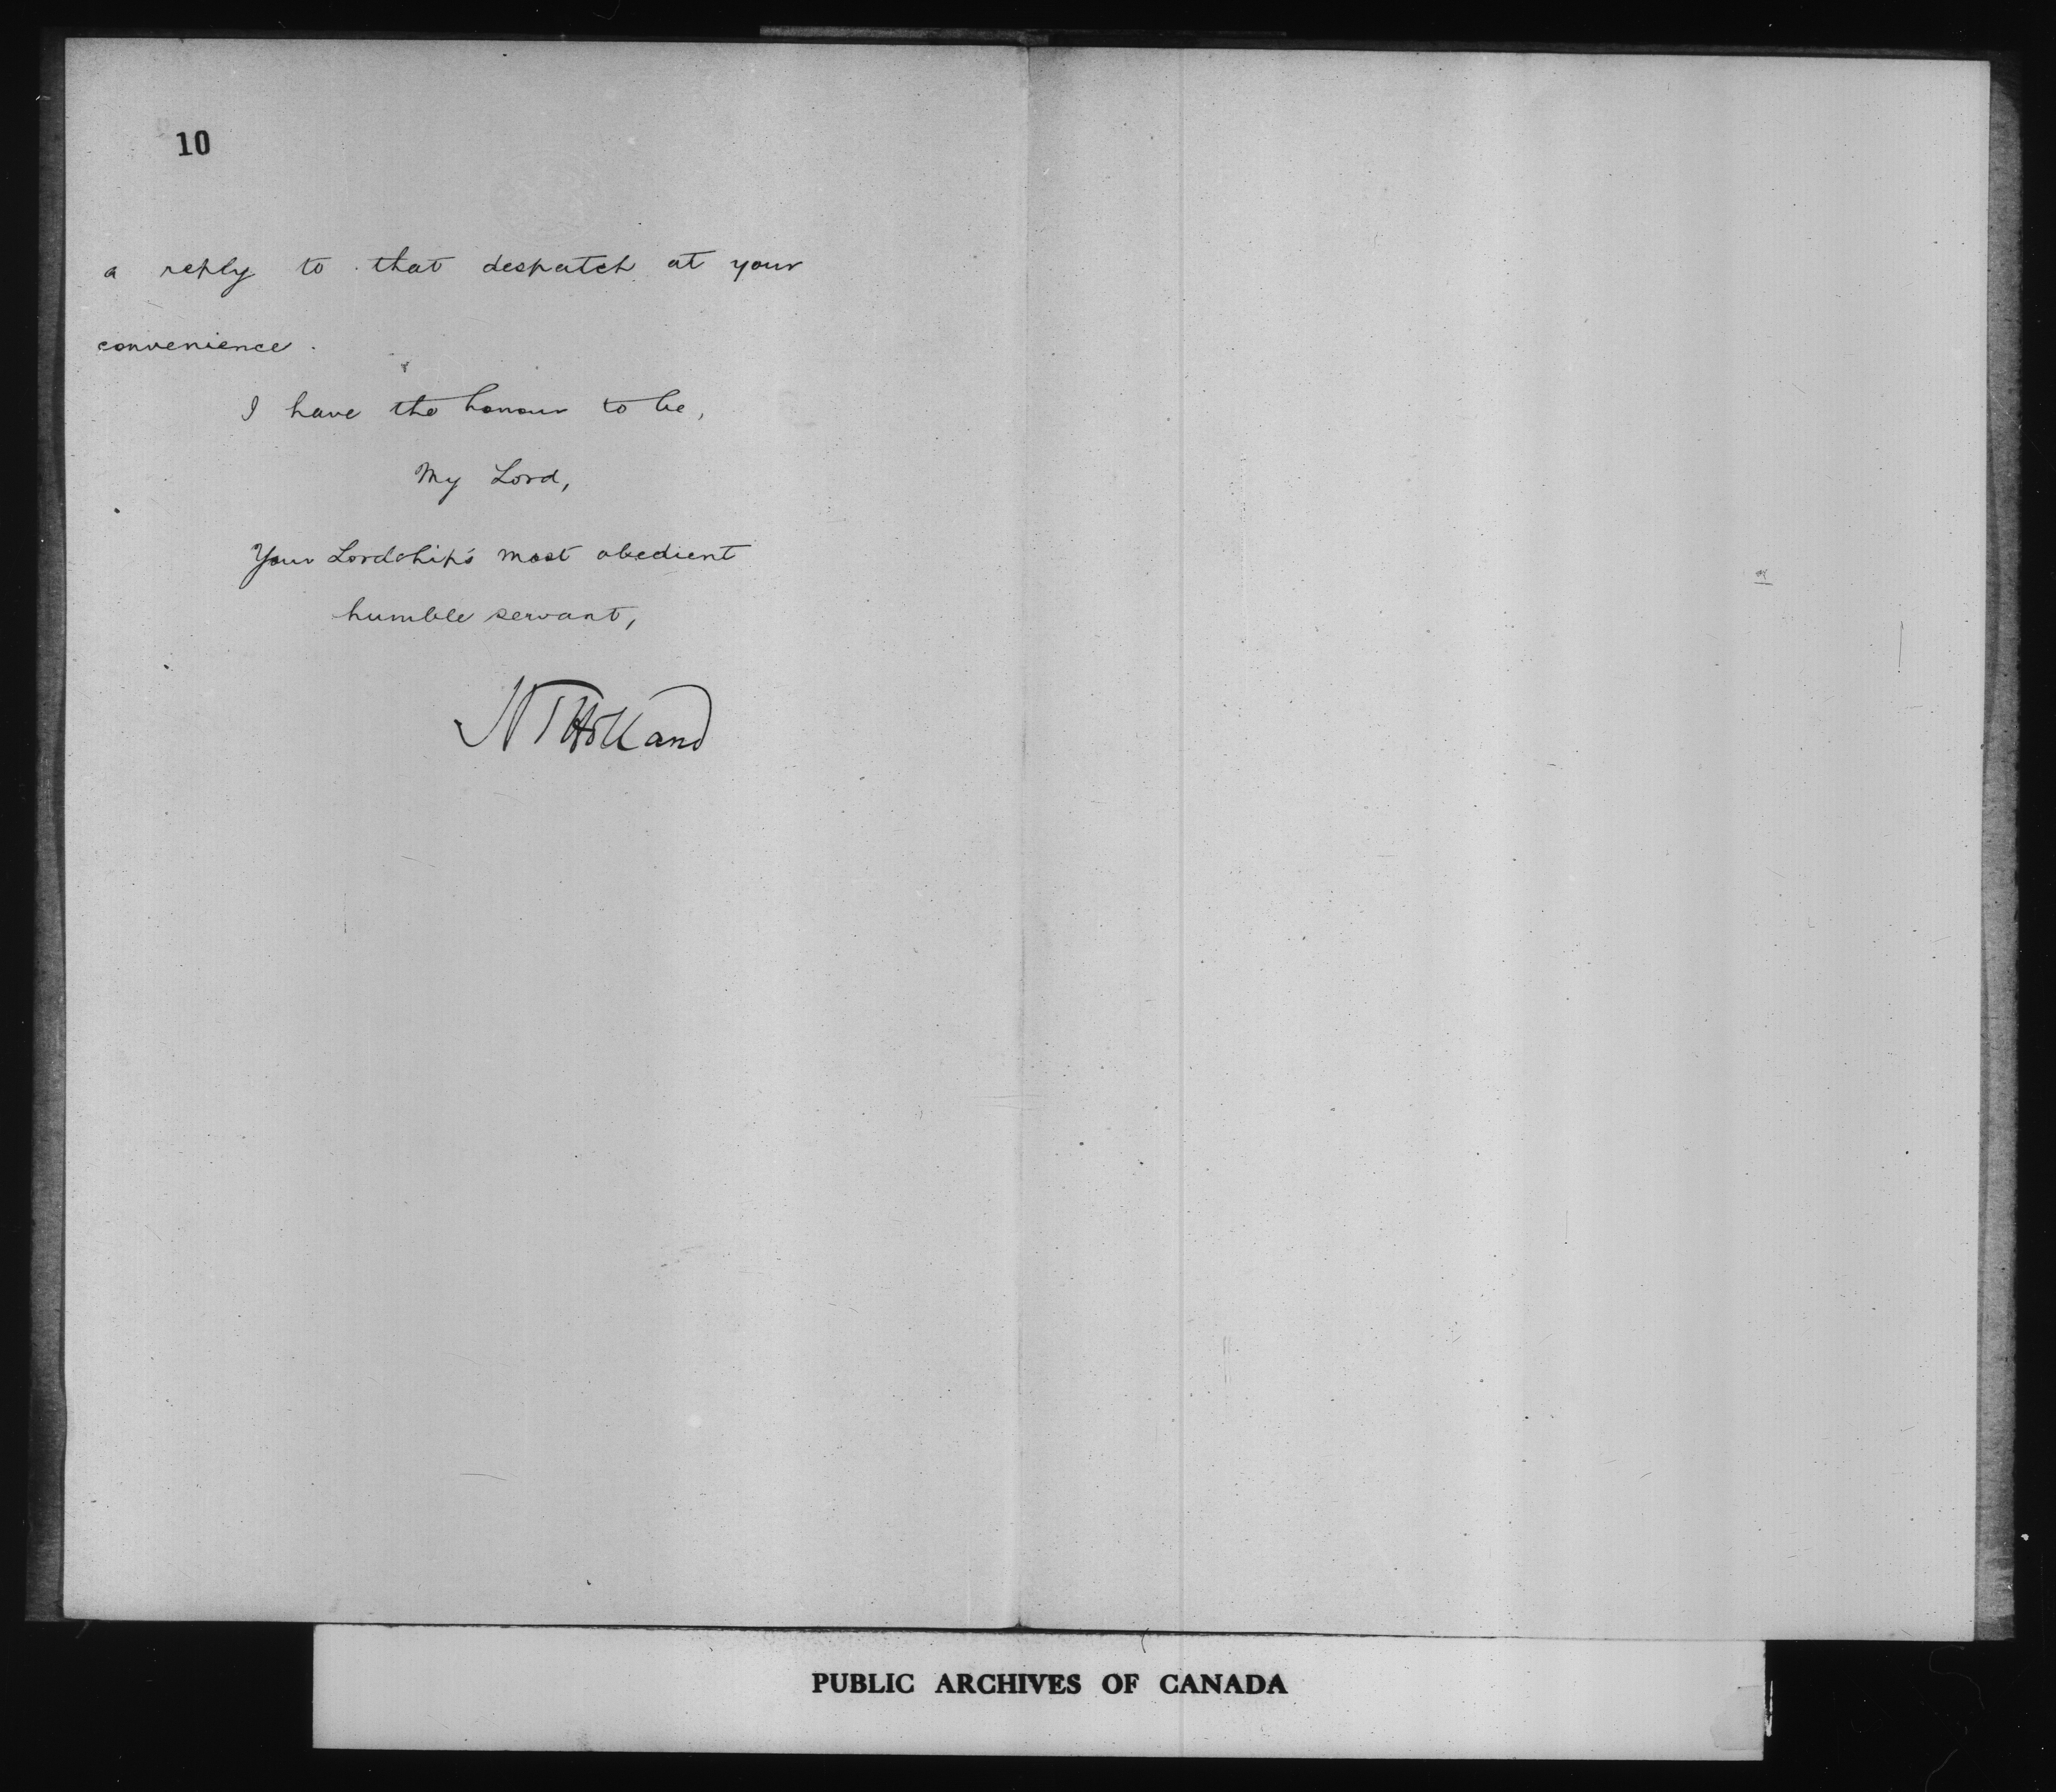 10
a reply to that despatch at your
convenience.
I have the honour to be,
My Lord,
Your Lordship's most obedient
humble servant,
HTHolland
PUBLIC ARCHIVES OF CANADA